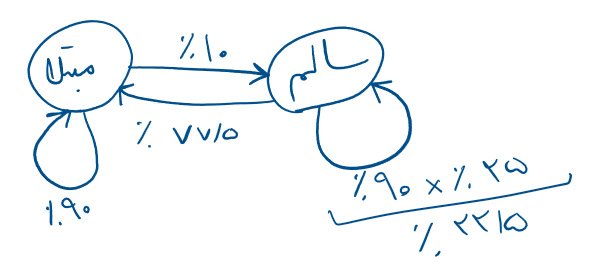 ٪۱۰
مبتلا
سالم
٪۷۷/۵
٪۹۰
٪۹۰ × ٪۲۵
٪۲۲/۵